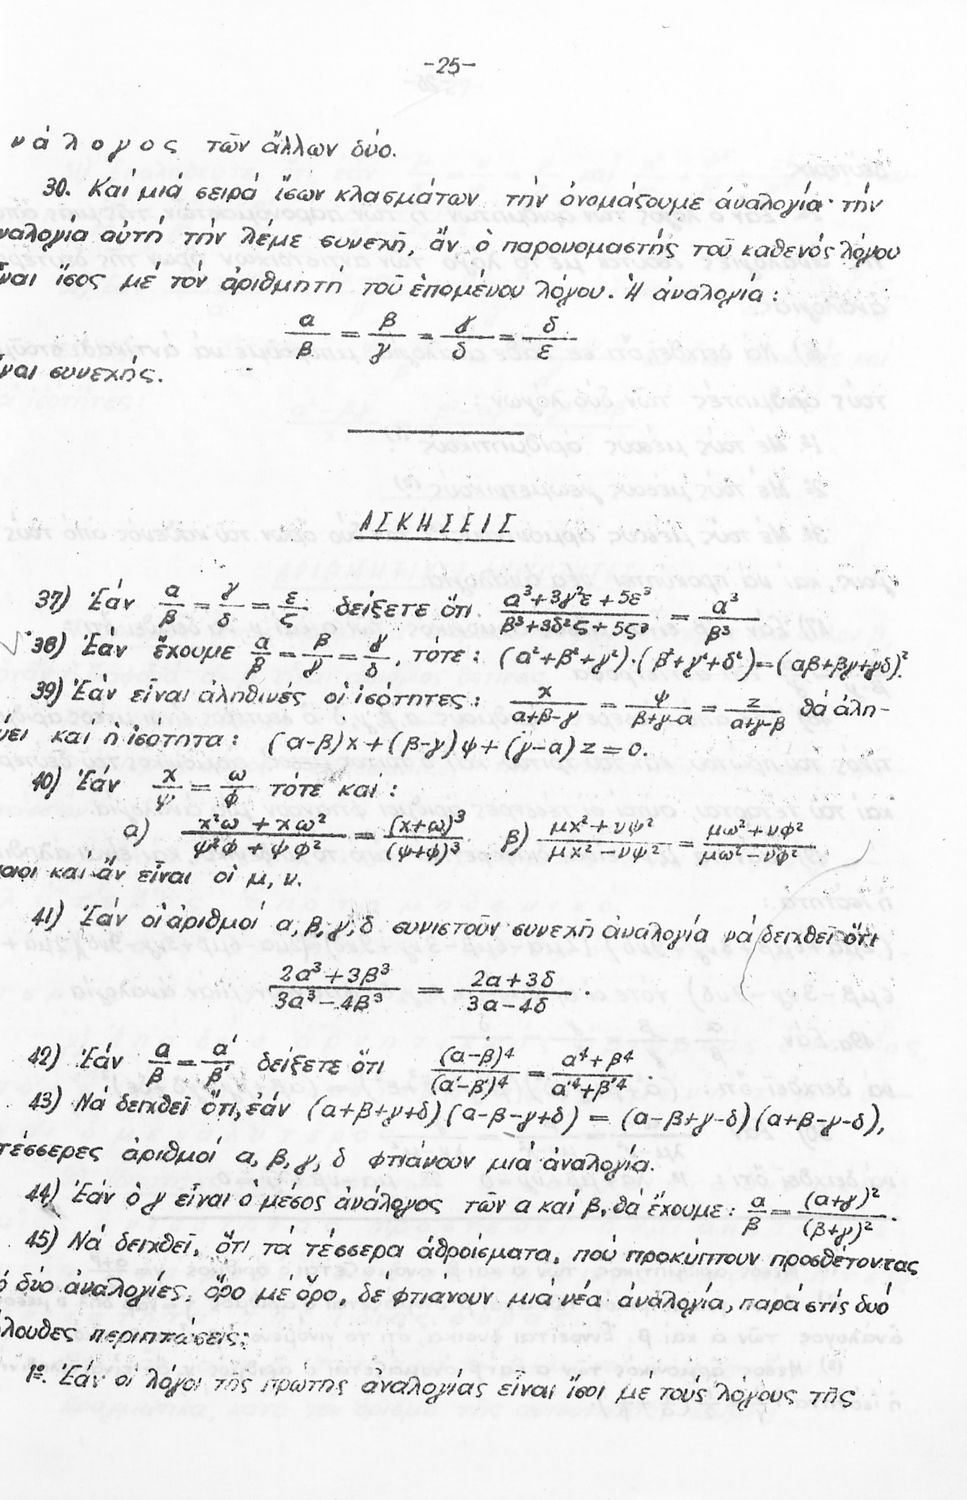 -25-
νάλογος τῶν ἄλλων δύο.
30. Καί μιά σειρά ἴσων κλασμάτων τήν ὀνομάζουμε ἀναλογία· τήν
ναλογία αὐτή τήν λέμε συνεχῆ, ἄν ὁ παρονομαστής τοῦ καθενός λόγου
ναι ἴσος μέ τόν ἀριθμητή τοῦ ἑπομένου λόγου. Ἡ ἀναλογία:
α/β = β/γ = γ/δ = δ/ε
ναι συνεχής.
ΑΣΚΗΣΕΙΣ
37) Ἐάν α/β = γ/δ = ε/ς δείξετε ὅτι (α³+3γ²ε+5ε³)/(β³+3δ²ς+5ς³) = α³/β³
38) Ἐάν ἔχουμε α/β = β/γ = γ/δ, τοτε: (α²+β²+γ²)·(β²+γ²+δ²)=(αβ+βγ+γδ)².
39) Ἐάν εἶναι αληθινές οἱ ἰσότητες: x/(α+β-γ) = ψ/(β+γ-α) = z/(α+γ-β) θά ἀλη-
εύει καί ἡ ἰσότητα: (α-β)x+(β-γ)ψ+(γ-α)z=0.
40) Ἐάν x/ψ = ω/φ τότε καί:
α) (x²ω+xω²)/(ψ²φ+ψφ²) = (x+ω)³/(ψ+φ)³ β) (μx²+νψ²)/(μx²-νψ²) = (μω²+νφ²)/(μω²-νφ²)
ποιοι και ἄν εἶναι οἱ μ, ν.
41) Ἐάν οἱ ἀριθμοί α,β,γ,δ συνιστοῦν συνεχῆ ἀναλογία νά δειχθεῖ ὅτι
(2α³+3β³)/(3α³-4β³) = (2α+3δ)/(3α-4δ).
42) Ἐάν α/β = α'/β' δείξετε ὅτι (α-β)⁴/(α'-β')⁴ = (α⁴+β⁴)/(α'⁴+β'⁴).
43) Νά δειχθεῖ ὅτι, ἐάν (α+β+γ+δ)(α-β-γ+δ) = (α-β+γ-δ)(α+β-γ-δ),
τέσσερες ἀριθμοί α, β, γ, δ φτιάνουν μιά ἀναλογία.
44) Ἐάν ὁ γ εἶναι ὁ μεσος ἀνάλογος τῶν α καί β, θά ἔχουμε: α/β = (α+γ)²/(β+γ)².
45) Νά δειχθεῖ, ὅτι τά τέσσερα ἀθροίσματα, πού προκύπτουν προσθέτοντας
δύο ἀναλογίες, ὅρο μέ ὅρο, δέ φτιάνουν μιά νέα ἀναλογία, παρά στίς δυό
όλουθες περιπτώσεις:
1º. Ἐάν οἱ λόγοι τῆς πρώτης ἀναλογίας εἶναι ἴσοι μέ τούς λόγους τῆς